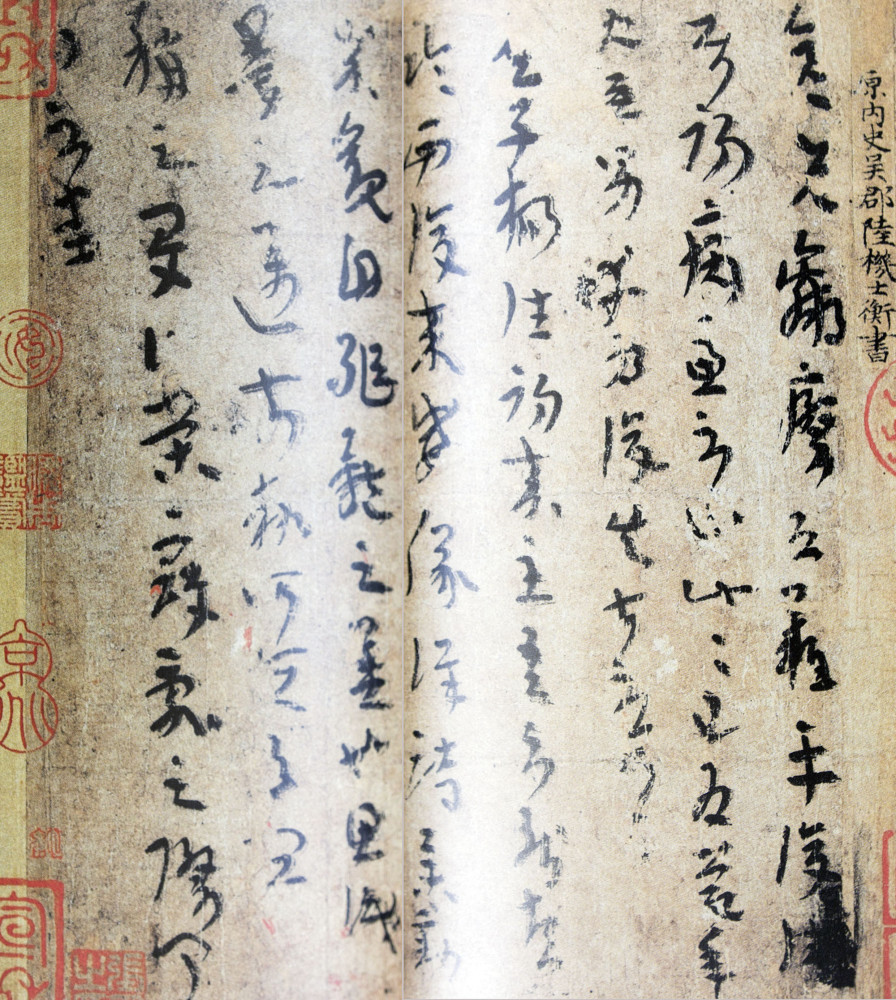 晉內史吳郡陸機士衡書
彦先羸瘵恐難平復往屬
初病慮不止此此已為慶承
使唯男幸為復失前憂耳
吳子楊往初來主吾不能盡
臨西復來威儀詳跱舉動
成觀自軀體之美也思識
量之邁前執所恒有宜
稱之夏伯榮寇亂之際聞
問不悉